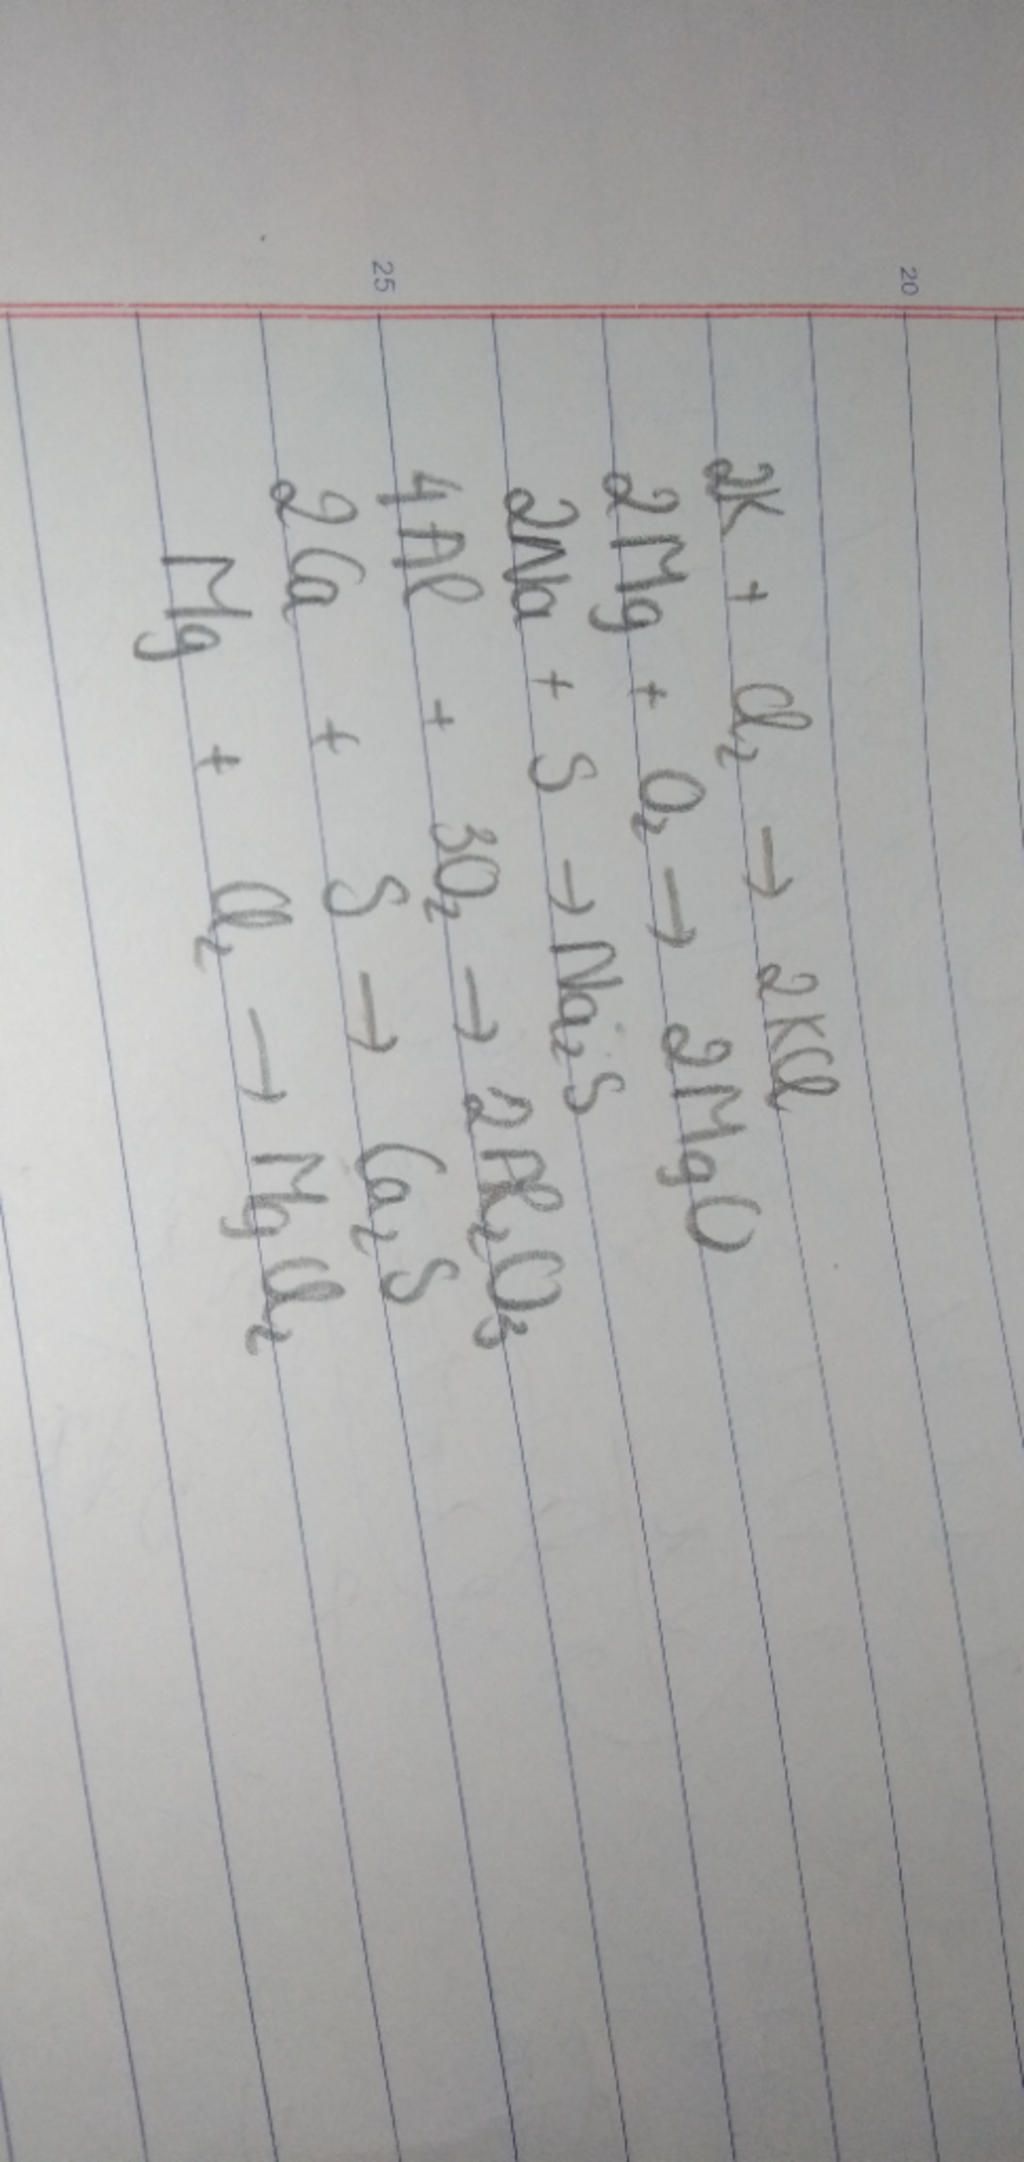 20
2K + Cl₂ → 2KCl
2Mg + O₂ → 2MgO
2Na + S → Na₂S
25
4Al + 3O₂ → 2Al₂O₃
2Ca + S → Ca₂S
Mg + Cl₂ → MgCl₂